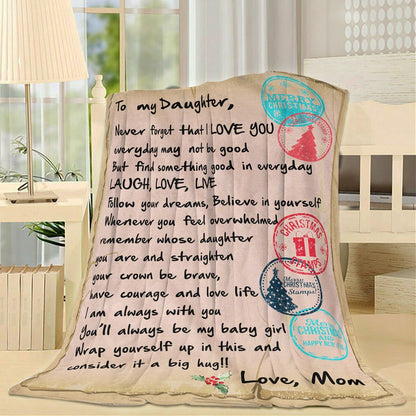 To my Daughter,
Never forget that I LOVE YOU
everyday may not be good
But find something good in everyday
LAUGH, LOVE, LIVE
Follow your dreams, Believe in yourself
Whenever you feel overwhelmed
remember whose daughter
you are and straighten
your crown be brave,
have courage and love life
I am always with you
You'll always be my baby girl
Wrap yourself up in this and
consider it a big hug!!
Love, Mom
MERRY
CHRISTMAS
CHRISTMAS
STAMPS
Merry
CHRISTMAS
Stamps!
Merry
CHRISTMAS
AND
HAPPY NEW YEAR